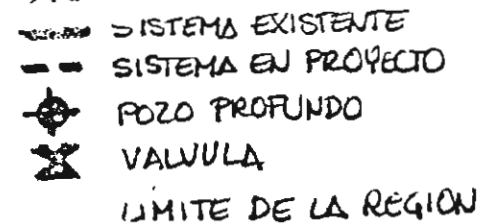 SISTEMA EXISTENTE
SISTEMA EN PROYECTO
POZO PROFUNDO
VALVULA
LIMITE DE LA REGION